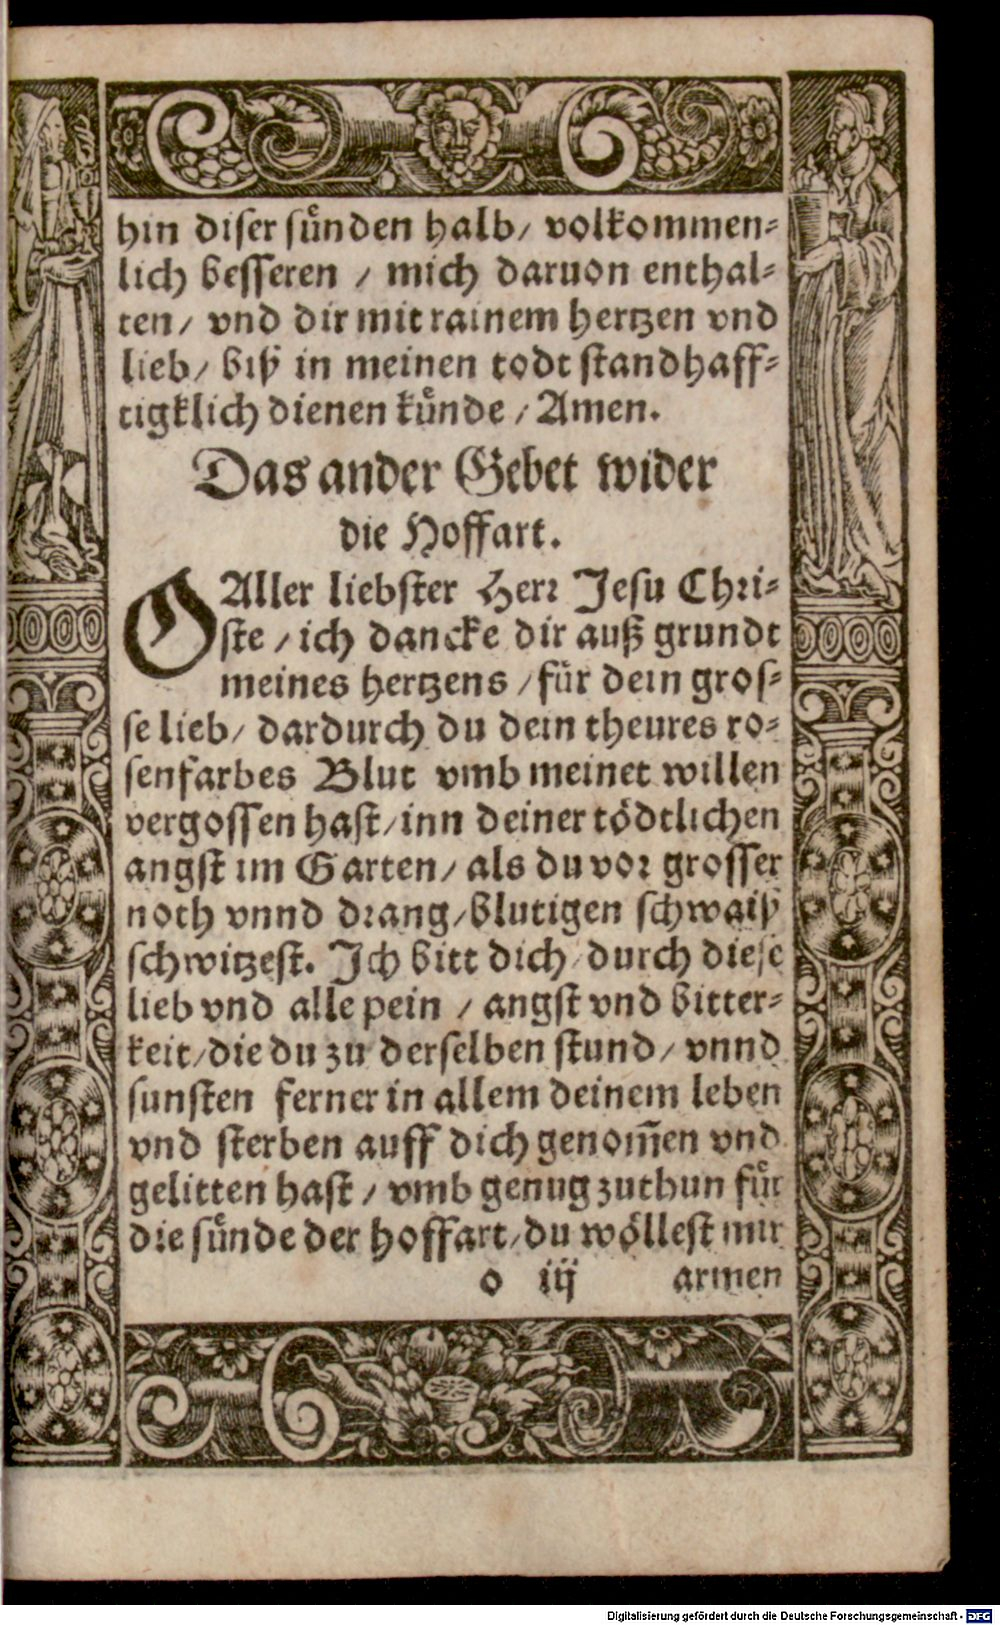 hin diser sünden halb/ volkommen-
lich besseren / mich daruon enthal-
ten/ vnd dir mit rainem hertzen vnd
lieb/ biß in meinen todt standhaff-
tigklich dienen künde / Amen.
Das ander Gebet wider
die Hoffart.
O Aller liebster Herr Jesu Chri-
ste / ich dancke dir auß grundt
meines hertzens / für dein gros-
se lieb/ dardurch du dein theures ro-
senfarbes Blut vmb meinet willen
vergossen hast/ inn deiner tödtlichen
angst im Garten/ als du vor grosser
noth vnnd drang/ blutigen schwaiß
schwitzest. Ich bitt dich/ durch diese
lieb vnd alle pein / angst vnd bitter-
keit/ die du zu derselben stund/ vnnd
sunsten ferner in allem deinem leben
vnd sterben auff dich genom̄en vnd
gelitten hast / vmb genug zuthun für
die sünde der hoffart/ du wöllest mir
o iij armen
Digitalisierung gefördert durch die Deutsche Forschungsgemeinschaft - DFG